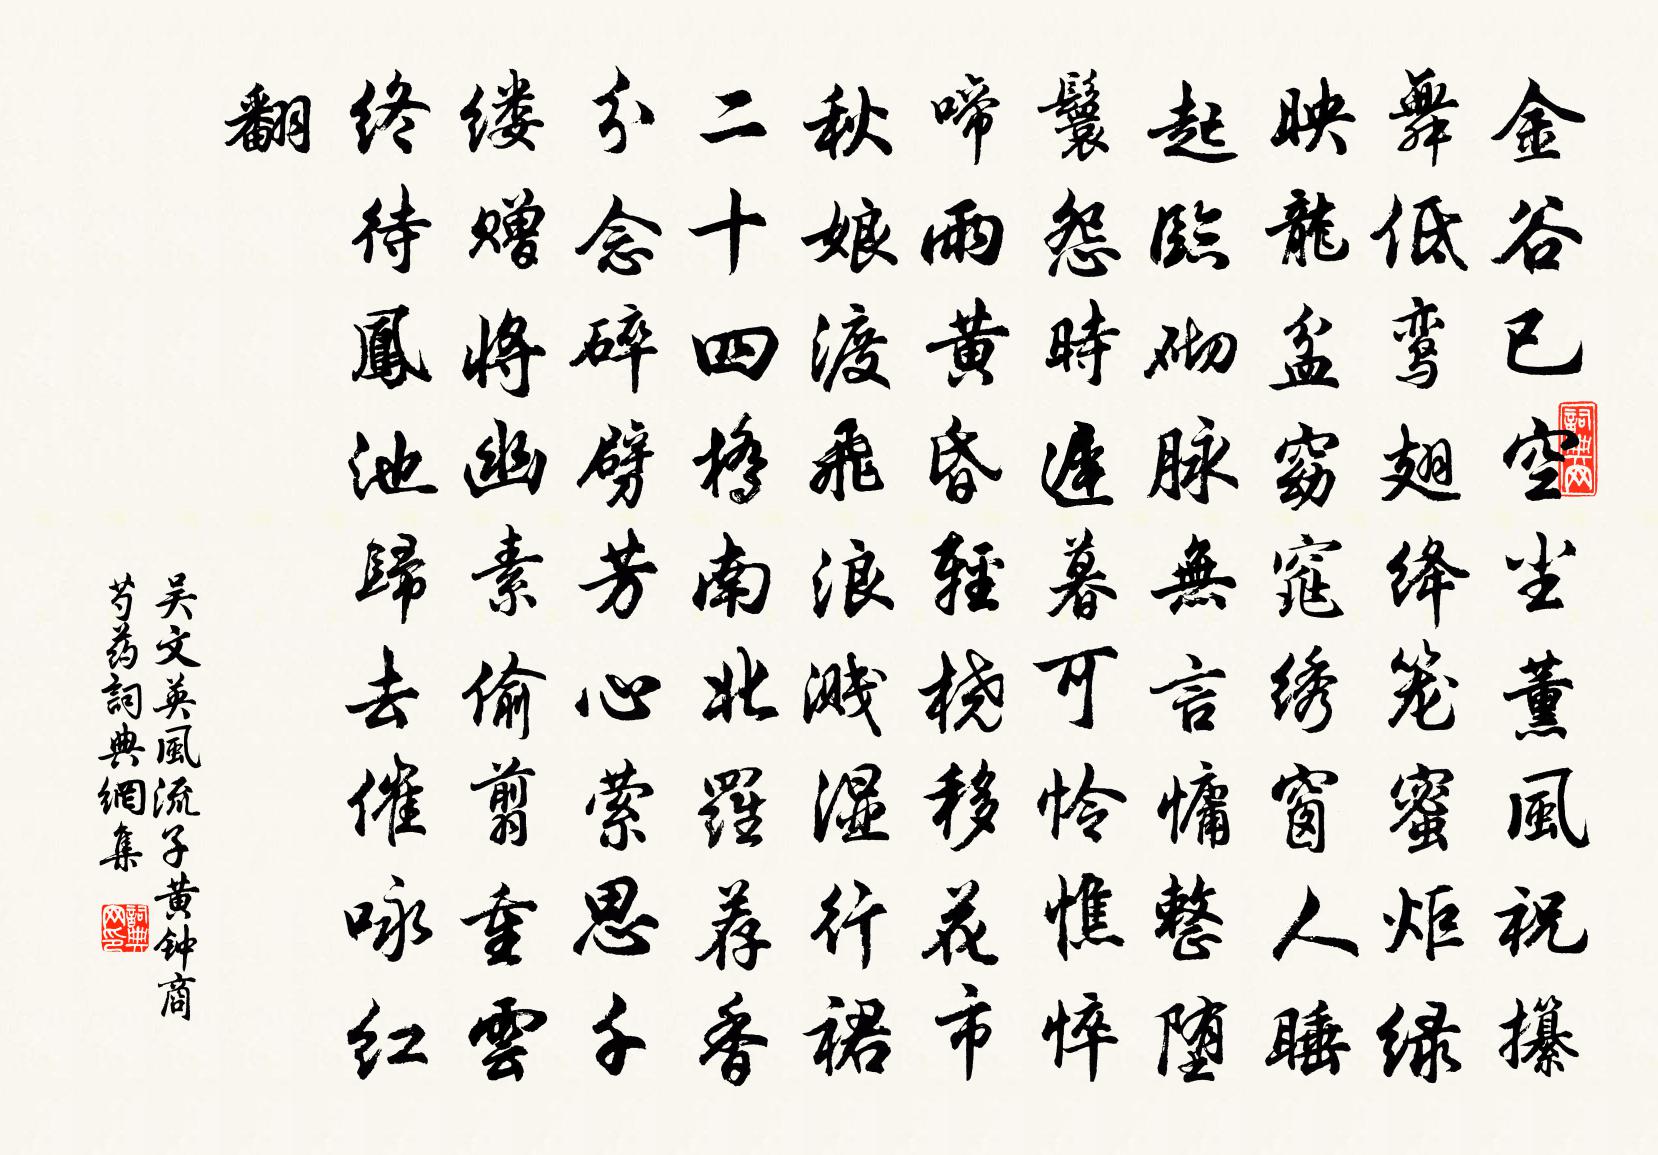 金谷已空尘薰風祝攥
舞低鸾翅绛笼蜜炬绿
映龍盆窈窕绣窗人睡
起臨砌脉無言慵整堕
鬟怨時遲暮可怜憔悴
啼雨黄昏輕桡移花市
秋娘渡飛浪溅湿行裙
二十四橋南北羅荐香
分念碎劈芳心萦思千
缕赠将幽素偷翦重雲
终待鳳池歸去催咏红
翻
吴文英風流子黄钟商
芍药詞典網集
詞典网
詞典网印